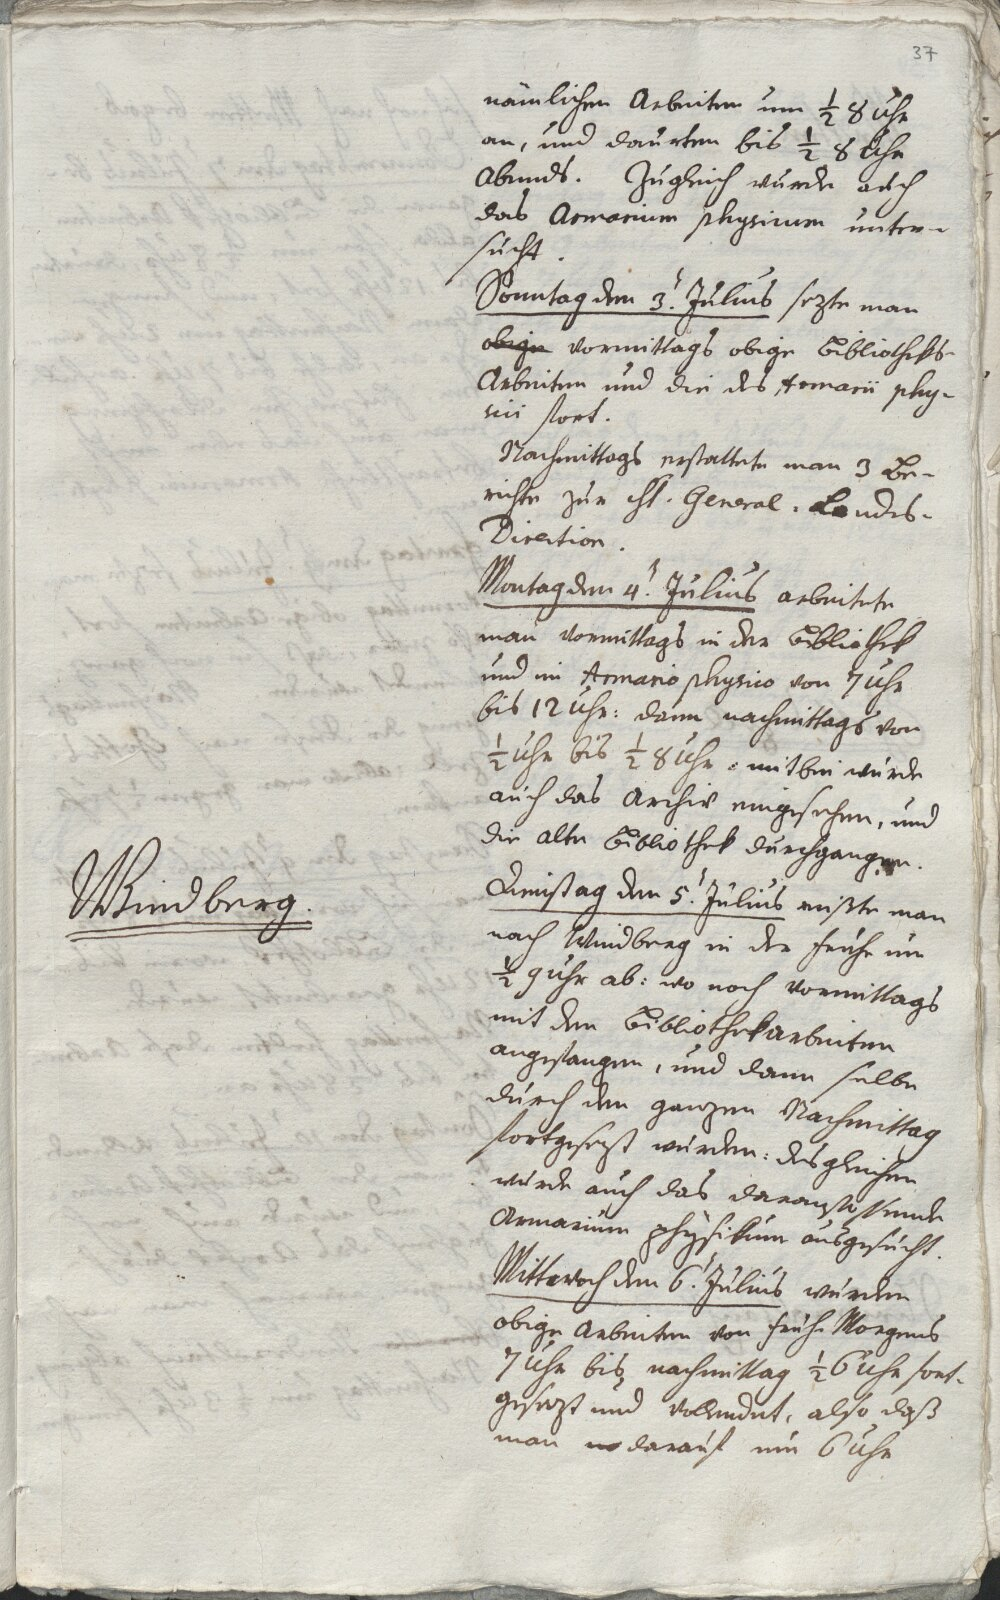 37
nämlichen Arbeiten um ½ 8 Uhr
an, und daurten bis ½ 8 Uhr
Abends. Zugleich wurde auch
das Armarium physicum unter-
sucht.
Sonntag den 3t. Julius sezte man
obige vormittags obige Bibliotheks-
Arbeiten und die des Armarii phy-
sici fort.
Nachmittags erstattete man 3 Be-
richte zur General-Landes-
Direction.
Montag den 4t. Julius arbeitete
man vormittags in der Bibliothek
und im Armario physico von 7 Uhr
bis 12 Uhr: dann nachmittags von
½ Uhr bis ½ 8 Uhr: mitbei wurde
auch das Archiv eingesehen, und
die alte Bibliothek durchgangen.
Windberg.
Dienstag den 5t. Julius reißte man
nach Windberg in der Frühe um
½ 9 Uhr ab: wo noch vormittags
mit den Bibliothekarbeiten
angefangen, und dann selbe
durch den ganzen Nachmittag
fortgesezt wurden: desgleichen
wurde auch das daranstossende
Armarium physikum ausgesucht.
Mittwoch den 6t. Julius wurden
obige Arbeiten von früh Morgens
7 Uhr bis nachmittag ½ 6 Uhr fort-
gesezt und vollendet, also daß
man darauf um 6 Uhr